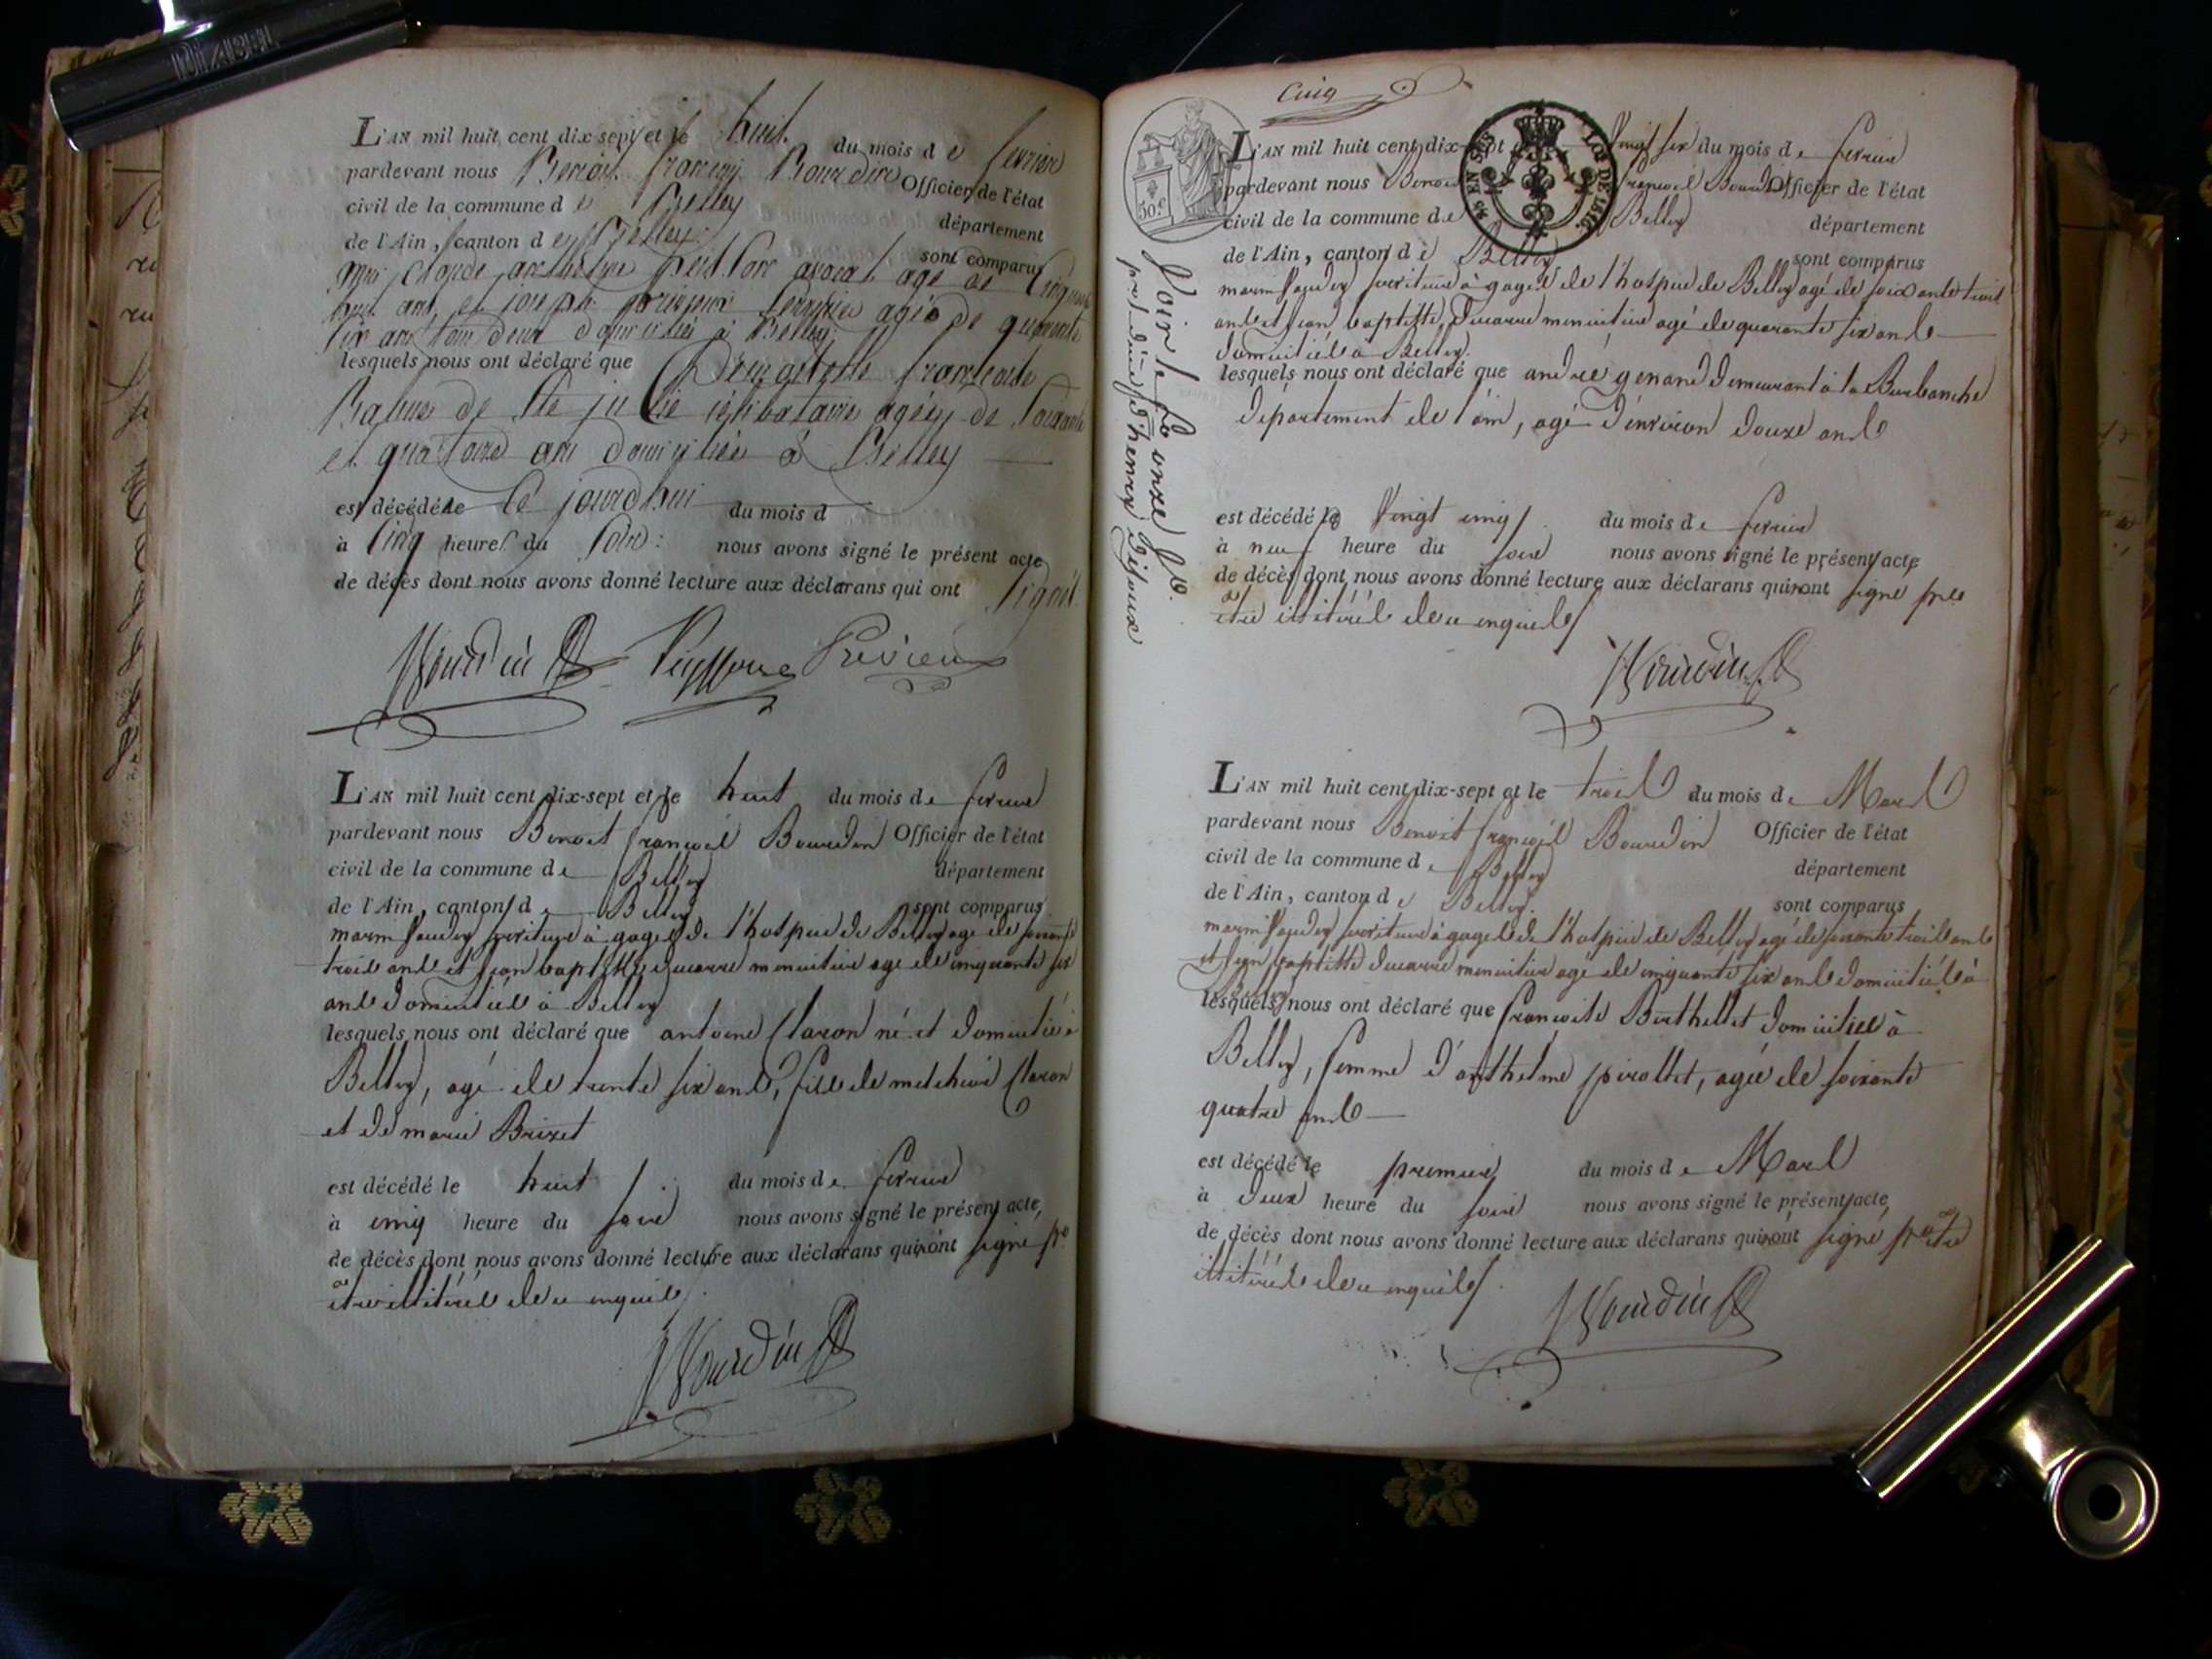 L'AN mil huit cent dix-sept et le huit du mois de fevrier
pardevant nous Benoit françois Bourdin Officier de l'état
civil de la commune de Belley
département
de l'Ain, canton de Belley sont comparus
Claude anthelme avocat agé de Cinquante
huit ans, et joseph agé de quarante
six ans tous deux domiciliés à Belley
lesquels nous ont déclaré que Demoiselle françoise
de Ste julie célibataire agée de soixante
et quatorze ans domiciliée à Belley
est décédée le jourdhui du mois d
à Cinq heures du soir: nous avons signé le présent acte
de décès dont nous avons donné lecture aux déclarans qui ont signés
Bourdin
L'AN mil huit cent dix-sept et le huit du mois de fevrier
pardevant nous Benoit françois Bourdin Officier de l'état
civil de la commune de Belley
département
de l'Ain, canton de Belley sont comparus
marin serviteur à gages de l'hospice de Belley agé de soixante
trois ans et jean baptiste ducarre menuisier agé de cinquante six
ans domiciliés à Belley
lesquels nous ont déclaré que antoine Claron né et domicilié à
Belley, agé de trente six ans, fils de melchior Claron
et de marie Brizet
est décédé le huit du mois de fevrier
à cinq heure du soir nous avons signé le présent acte,
de décès dont nous avons donné lecture aux déclarans qui n'ont signé pr
être illitérés de ce enquis
Bourdin
Cinq
30 c.
95 EN SUS
LOI DE 1816.
L'AN mil huit cent dix-sept vingt six du mois de fevrier
pardevant nous Benoit françois Bourdin Officier de l'état
civil de la commune de Belley
département
de l'Ain, canton de Belley sont comparus
marin serviteur à gages de l'hospice de Belley agé de soixante trois
ans et jean baptiste Ducarre menuisier agé de quarante six ans
domiciliés à Belley
lesquels nous ont déclaré que andré genand demeurant à la Burbanche
département de l'ain, agé d'environ douze ans
est décédé le vingt cinq du mois de fevrier
à neuf heure du soir nous avons signé le présent acte
de décès dont nous avons donné lecture aux déclarans qui n'ont signé pr
être illitérés de ce enquis
Bourdin
Voir le fo onze vo.
L'AN mil huit cent dix-sept et le trois du mois de Mars
pardevant nous Benoit françois Bourdin Officier de l'état
civil de la commune de Belley
département
de l'Ain, canton de Belley. sont comparus
marin serviteur à gages de l'hospice de Belley agé de soixante trois ans
et jean baptiste ducarre menuisier agé de cinquante six ans domiciliés à
Belley
lesquels nous ont déclaré que françoise Berthellet domiciliée à
Belley, femme d'anthelme pirollet, agée de soixante
quatre ans
est décédé le premier du mois de Mars
à deux heure du soir nous avons signé le présent acte,
de décès dont nous avons donné lecture aux déclarans qui n'ont signé pr être
illitérés de ce enquis
Bourdin